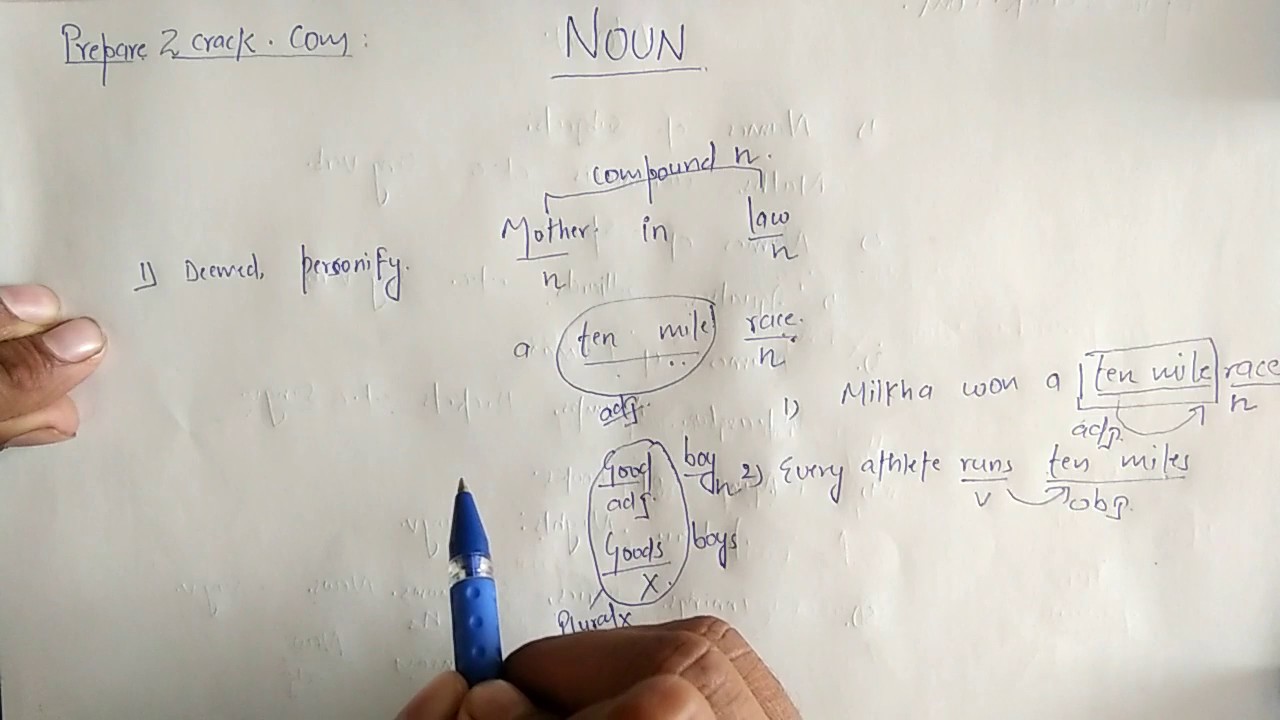 Prepare 2 crack. Com:
NOUN
compound n.
Mother in law
n n
1) Deemed, personify.
a ten mile race.
adj. n
1) Milkha won a ten mile race
adj. n
Good boy
adj. n
2) Every athlete runs ten miles
v obj.
Goods boys
X
Plural x